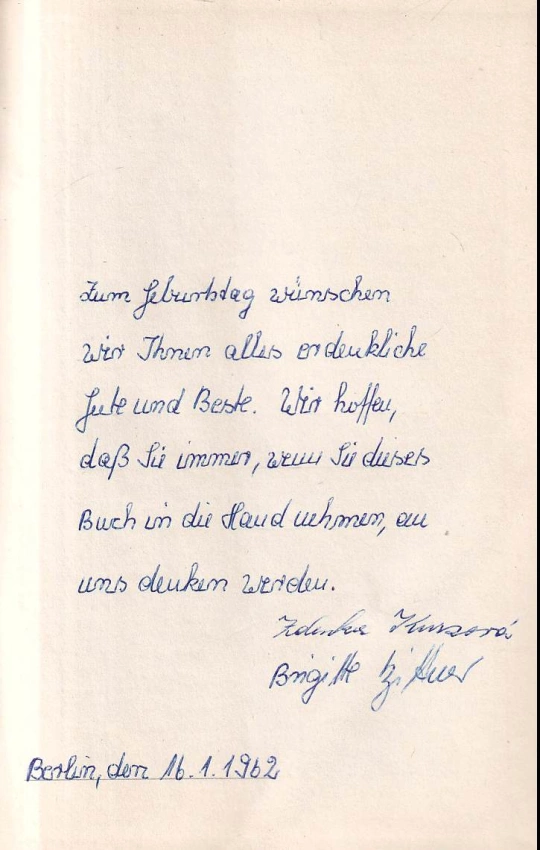 Zum Geburtstag wünschen
wir Ihnen alles erdenkliche
Gute und Beste. Wir hoffen,
daß Sie immer, wenn Sie dieses
Buch in die Hand nehmen, an
uns denken werden.
Zdenka
Brigitte
Berlin, den 16.1.1962